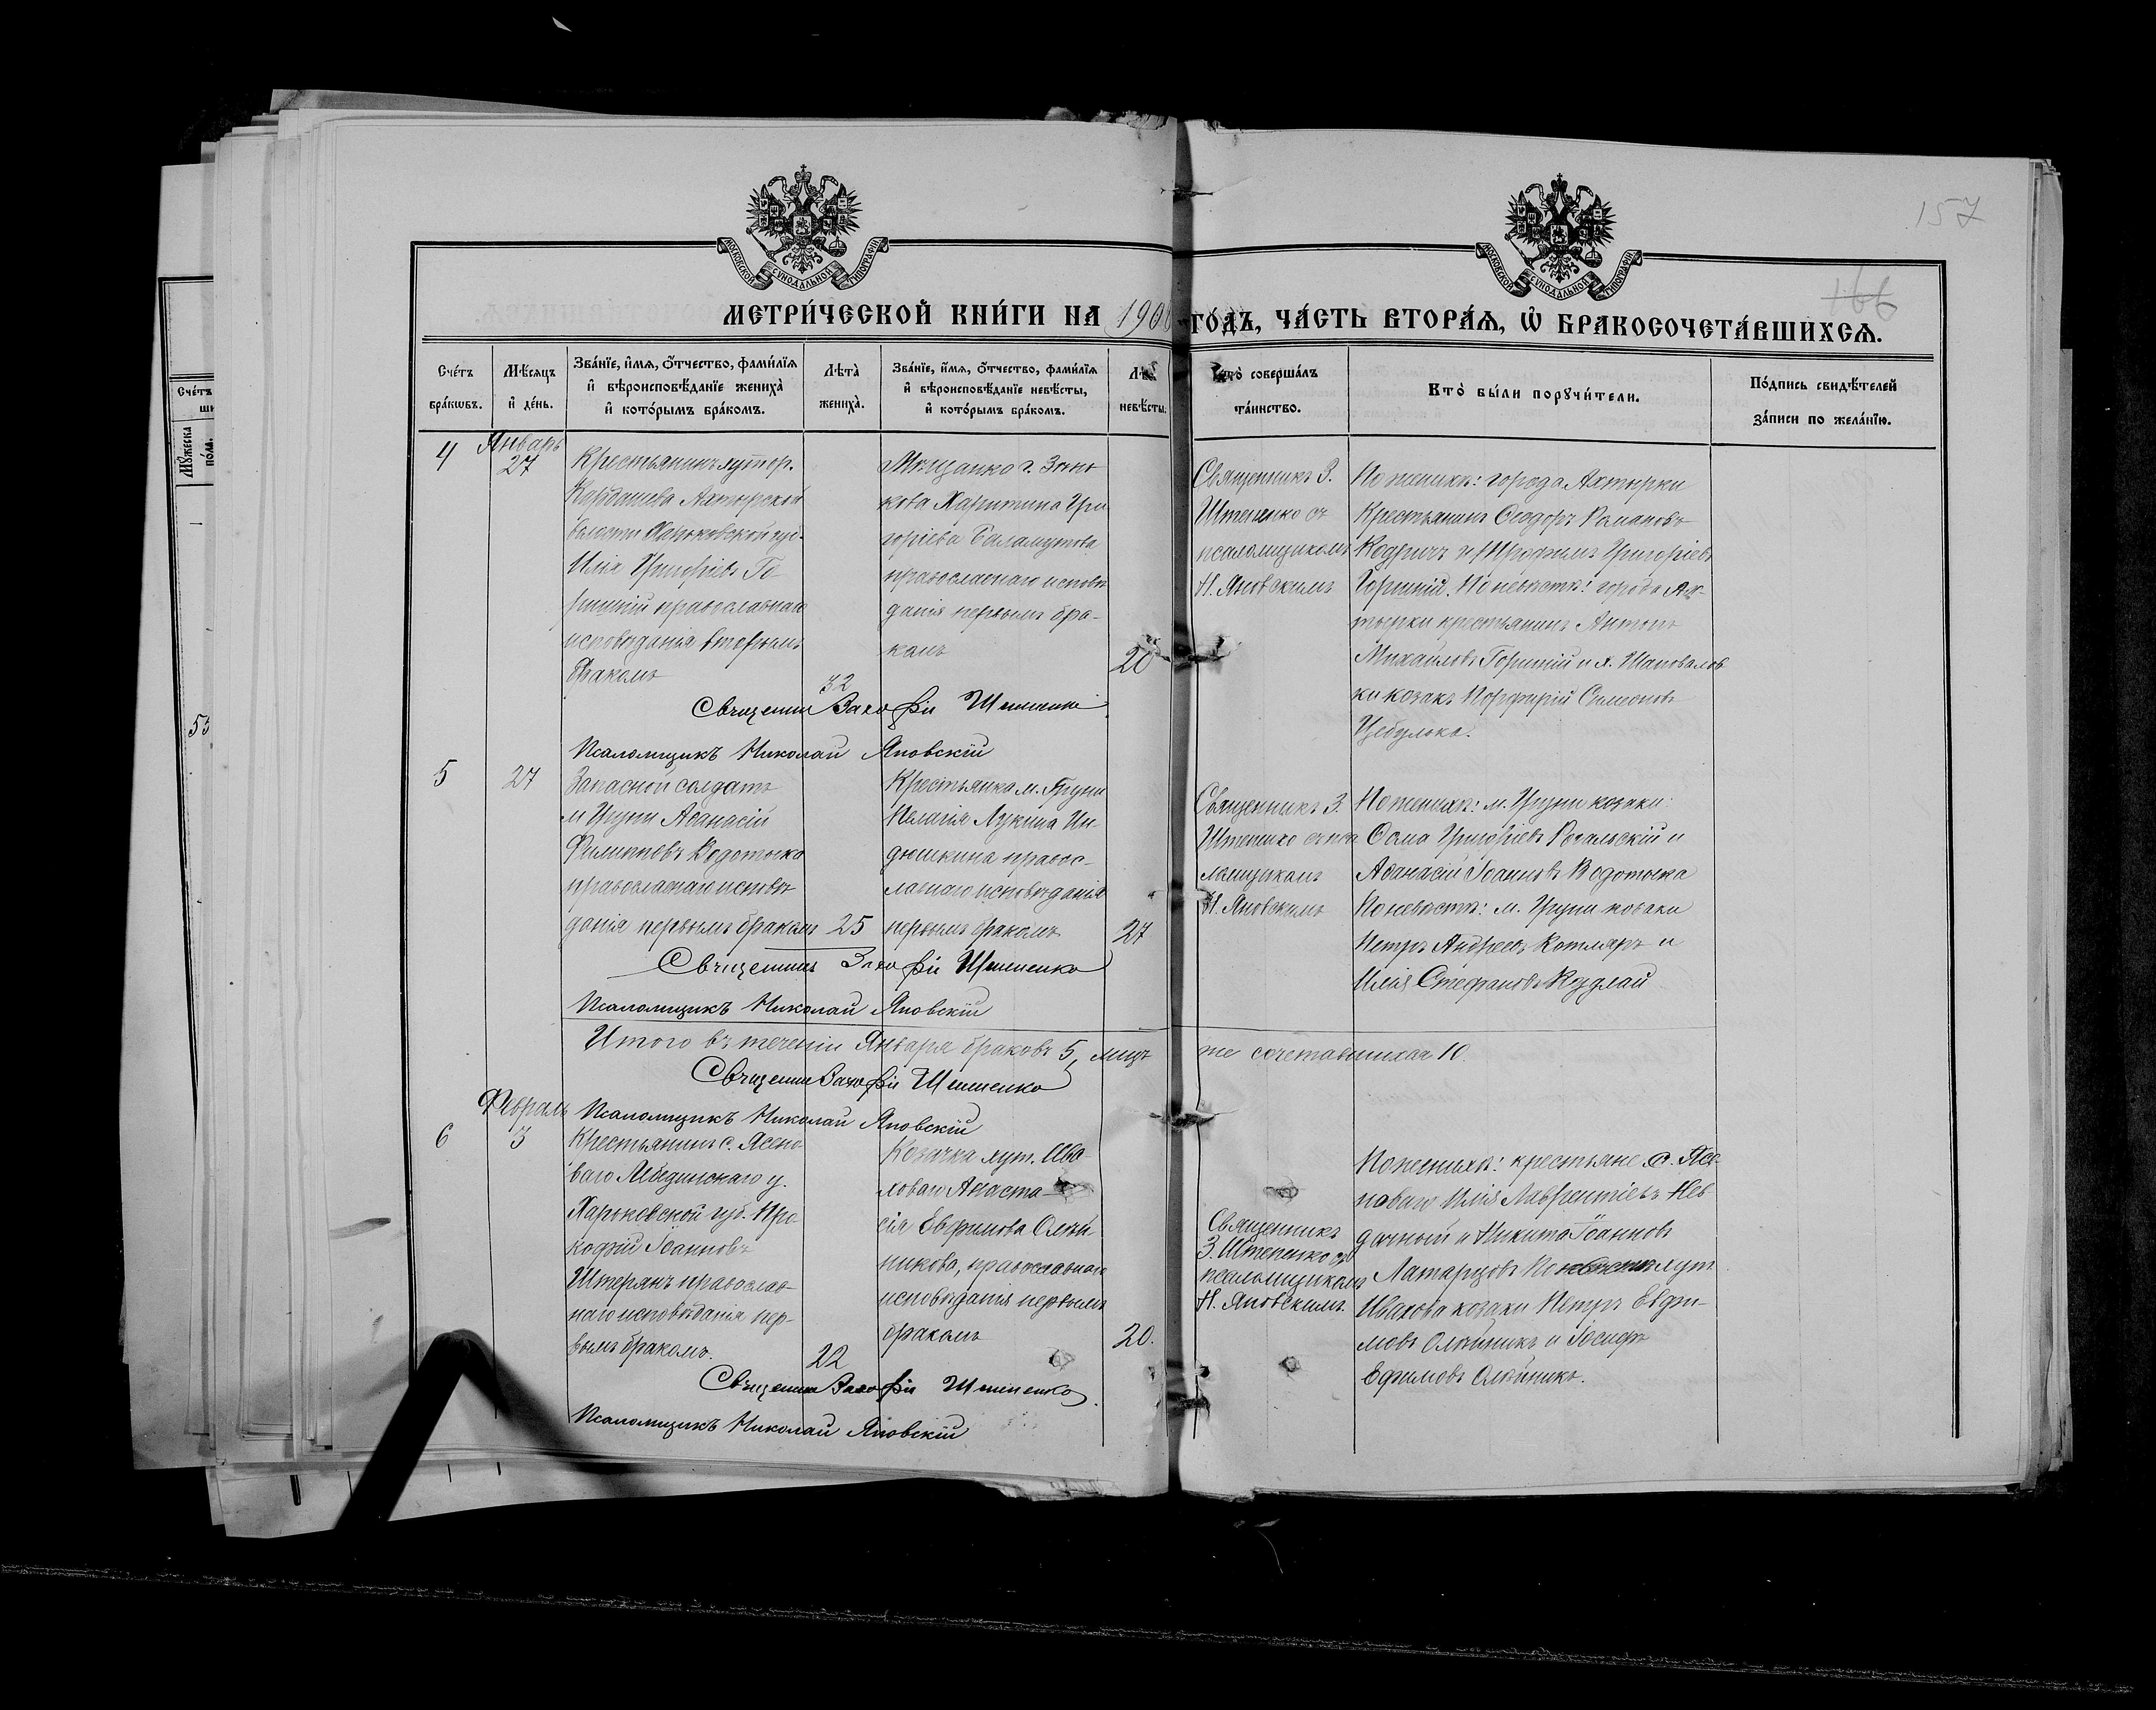 157
166
МОСКОВСКОЙ СУНОДАЛЬНОЙ ТИПОГРАФІИ
МОСКОВСКОЙ СУНОДАЛЬНОЙ ТИПОГРАФІИ
МЕТРИ́ЧЕСКОЙ КНИ́ГИ НА 1908 ГОДЪ, ЧА́СТЬ ВТОРА́Я, Ѡ БРАКОСОЧЕТА́ВШИХСѦ.
Сче́тъ бра́кѡвъ.
Мѣ́сяцъ и де́нь.
Зва́нїе, и́мя, ѻ҆́тчество, фами́лїя и вѣроисповѣ́данїе жениха̀ и кото́рымъ бра́комъ.
Лѣ́та жениха̀.
Зва́нїе, и́мя, ѻ҆́тчество, фами́лїя и вѣроисповѣ́данїе невѣ́сты, и кото́рымъ бра́комъ.
Лѣ́та невѣ́сты.
Кто̀ соверша́лъ та́инство.
Кто̀ бы́ли порꙋчи́тели.
По́дпись свидѣ́телей за́писи по жела́нїю.
4
Январь
27
Крестьянинъ хутор.
Ахтырской
волости Харьковской губ.
Илія Григоріевъ Го-
рицкій православнаго
исповѣданія вторымъ
бракомъ
32
Мѣщанка г. Зинь
кова Харитина Гри
горіева Баламутова
православнаго исповѣ
данія первымъ бра-
комъ
20
Священникъ З.
Штепенко съ
псаломщикомъ
Н. Яновскимъ
По женихѣ: города Ахтырки
Крестьянинъ Ѳеодоръ Романовъ
и Григоріевъ
По невѣстѣ: города Ах-
тырки крестьянинъ Антонъ
Михайловъ и х. Шаповалов
ки козакъ Порфирій Симеоновъ
Цебулька.
Священникъ Захарій Штепенко
Псаломщикъ Николай Яновскій
5
27
Запасной солдатъ
м Груни Аѳанасій
Филипповъ Водотыка
православнаго исповѣ
данія первымъ бракомъ
25
Крестьянка м. Груни
Пелагія Лукина Ин-
дюшкина правос-
лавнаго исповѣданія
первымъ бракомъ
27
Священникъ З.
Штепенко съ пса
ломщикомъ
Н. Яновскимъ
По женихѣ: м. Груни козаки:
Ѳома Григоріевъ Рогальскій и
Аѳанасій Іоанновъ Водотыка
По невѣстѣ: м. Груни козаки
Петръ Андреевъ Котляръ и
Илія Стефановъ Кудлай
Священникъ Захарій Штепенко
Псаломщикъ Николай Яновскій
Итого въ теченіи Января браковъ 5, лицъ же сочетавшихся 10.
Священникъ Захарій Штепенко
Псаломщикъ Николай Яновскій
6
Февраль
3
Крестьянинъ с. Ясено
ваго Лебединскаго у.
Харьковской губ. Про
кофій Іоанновъ
православ-
наго исповѣданія пер-
вымъ бракомъ.
22
Козачка хут.
Анаста-
сія Евфимова Олей
никова, православнаго
исповѣданія первымъ
бракомъ
20.
Священникъ
З. Штепенко съ
псаломщикомъ
Н. Яновскимъ
По женихѣ: крестьяне с. Ясе-
новаго Илія Лаврентіевъ Нев
дачный и Никита Іоанновъ
По невѣстѣ хут
козаки Петръ Евфи-
мовъ Олейникъ и Іосифъ
Ефимовъ Олейникъ.
Священникъ Захарій Штепенко
Псаломщикъ Николай Яновскій
Сче́тъ
Мꙋ́жеска по́ла.
53